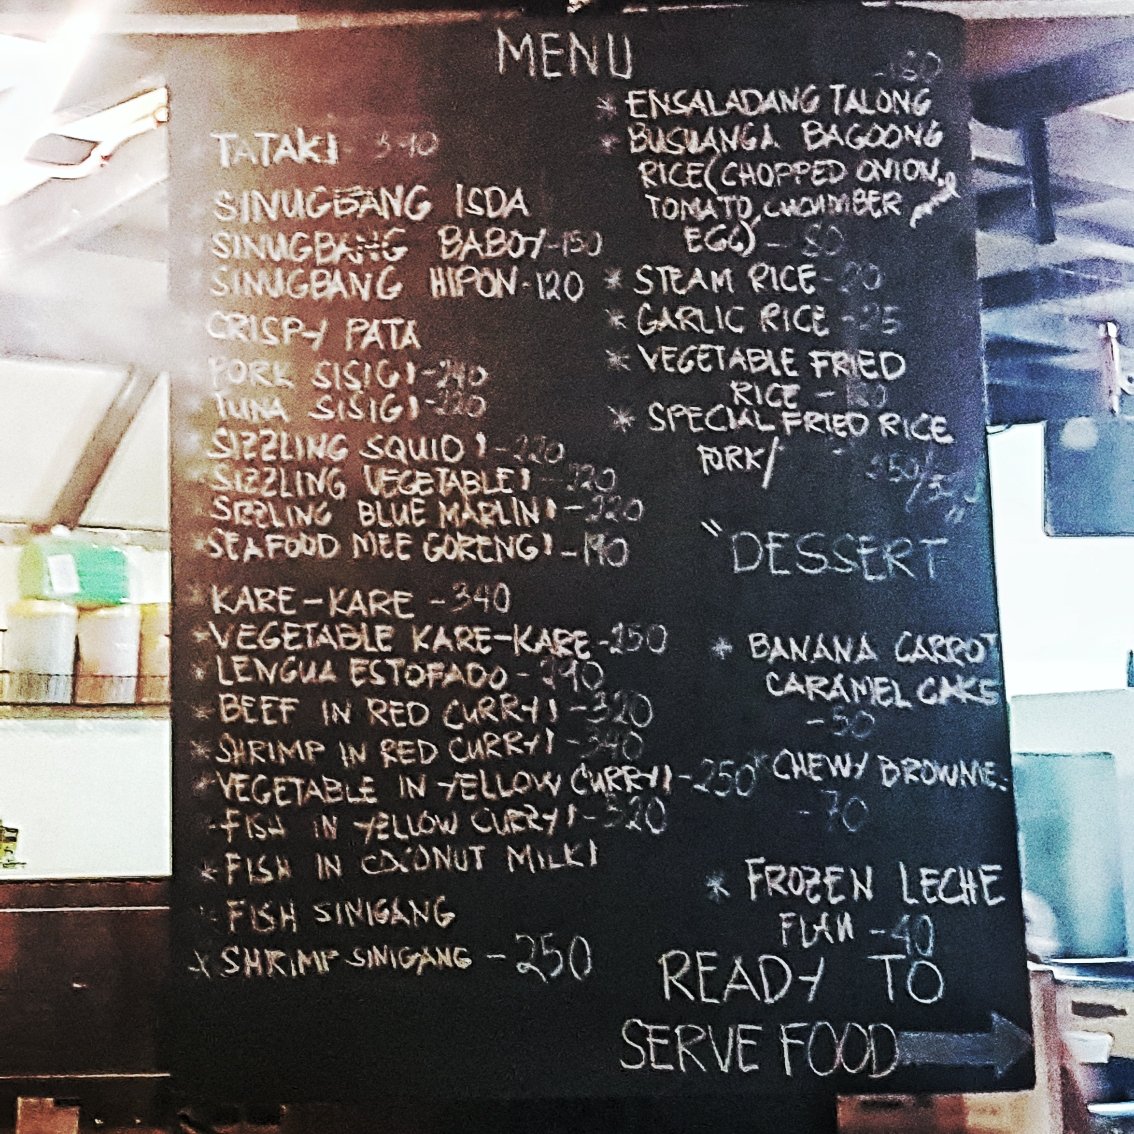 MENU
TATAKI - 340
SINUGBANG ISDA
SINUGBANG BABOY-150
SINUGBANG HIPON-120
CRISPY PATA
PORK SISIG!-240
TUNA SISIG!-220
SIZZLING SQUID!-220
SIZZLING VEGETABLE!-220
SIZZLING BLUE MARLIN!-220
*SEAFOOD MEE GORENG!-190
*KARE-KARE -340
*VEGETABLE KARE-KARE-250
*LENGUA ESTOFADO-290
*BEEF IN RED CURRY!-320
*SHRIMP IN RED CURRY!-340
*VEGETABLE IN YELLOW CURRY!-250
-FISH IN YELLOW CURRY!-320
*FISH IN COCONUT MILK!
*FISH SINIGANG
*SHRIMP SINIGANG -250
* ENSALADANG TALONG
* BUSUANGA BAGOONG
RICE(CHOPPED ONION,
TOMATO, CUCUMBER
EGG) - 80
* STEAM RICE-20
* GARLIC RICE -25
* VEGETABLE FRIED
RICE -
* SPECIAL FRIED RICE
PORK/
"DESSERT"
* BANANA CARROT
CARAMEL CAKE
-50
*CHEWY BROWNIE.
-70
* FROZEN LECHE
FLAN -40
READY TO
SERVE FOOD